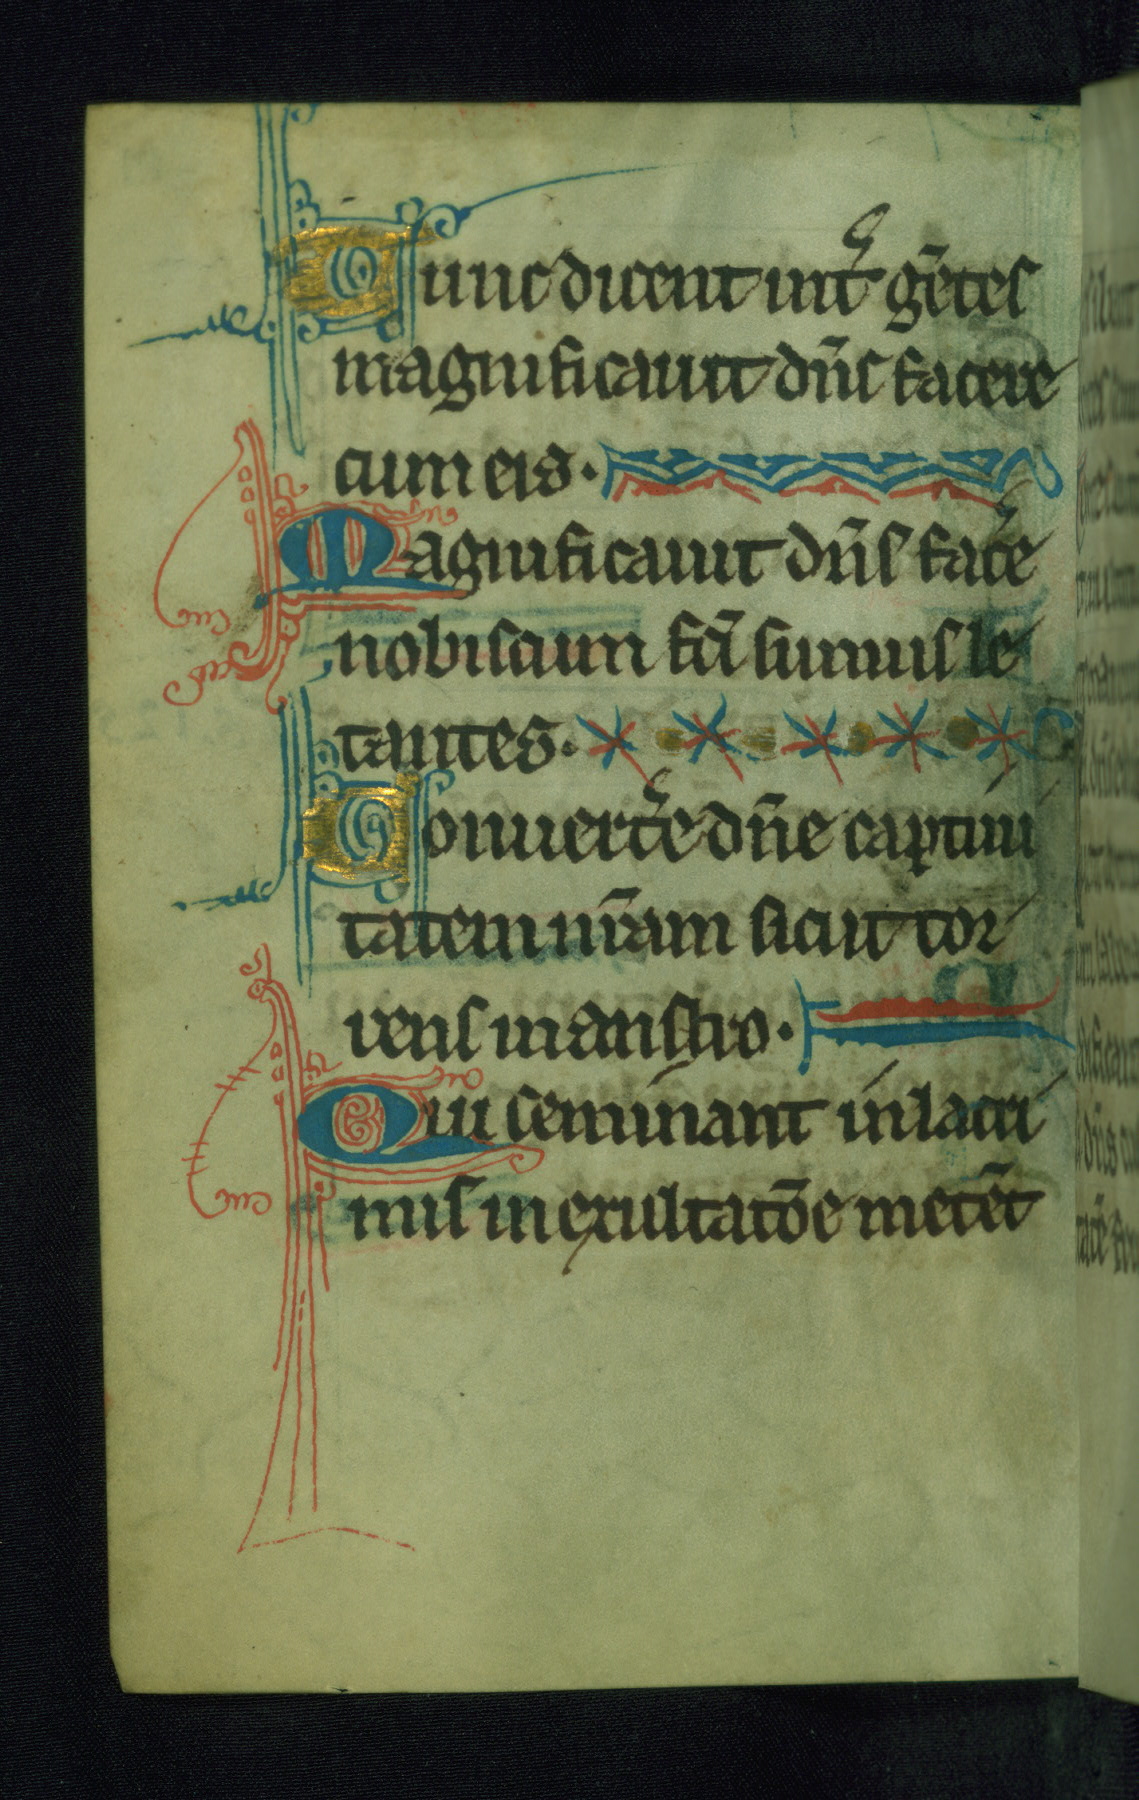 Tunc dicent int̃ gẽtes
magnificauit dñs facere
cum eis.
Magnificauit dñs fac̃e
nobiscum fc̃i sumus le
tantes.
Conuert̃e dñe captiui
tatem nr̃am sicut tor
rens in austro.
Qui seminant in lacri
mis in exultatõe metẽt